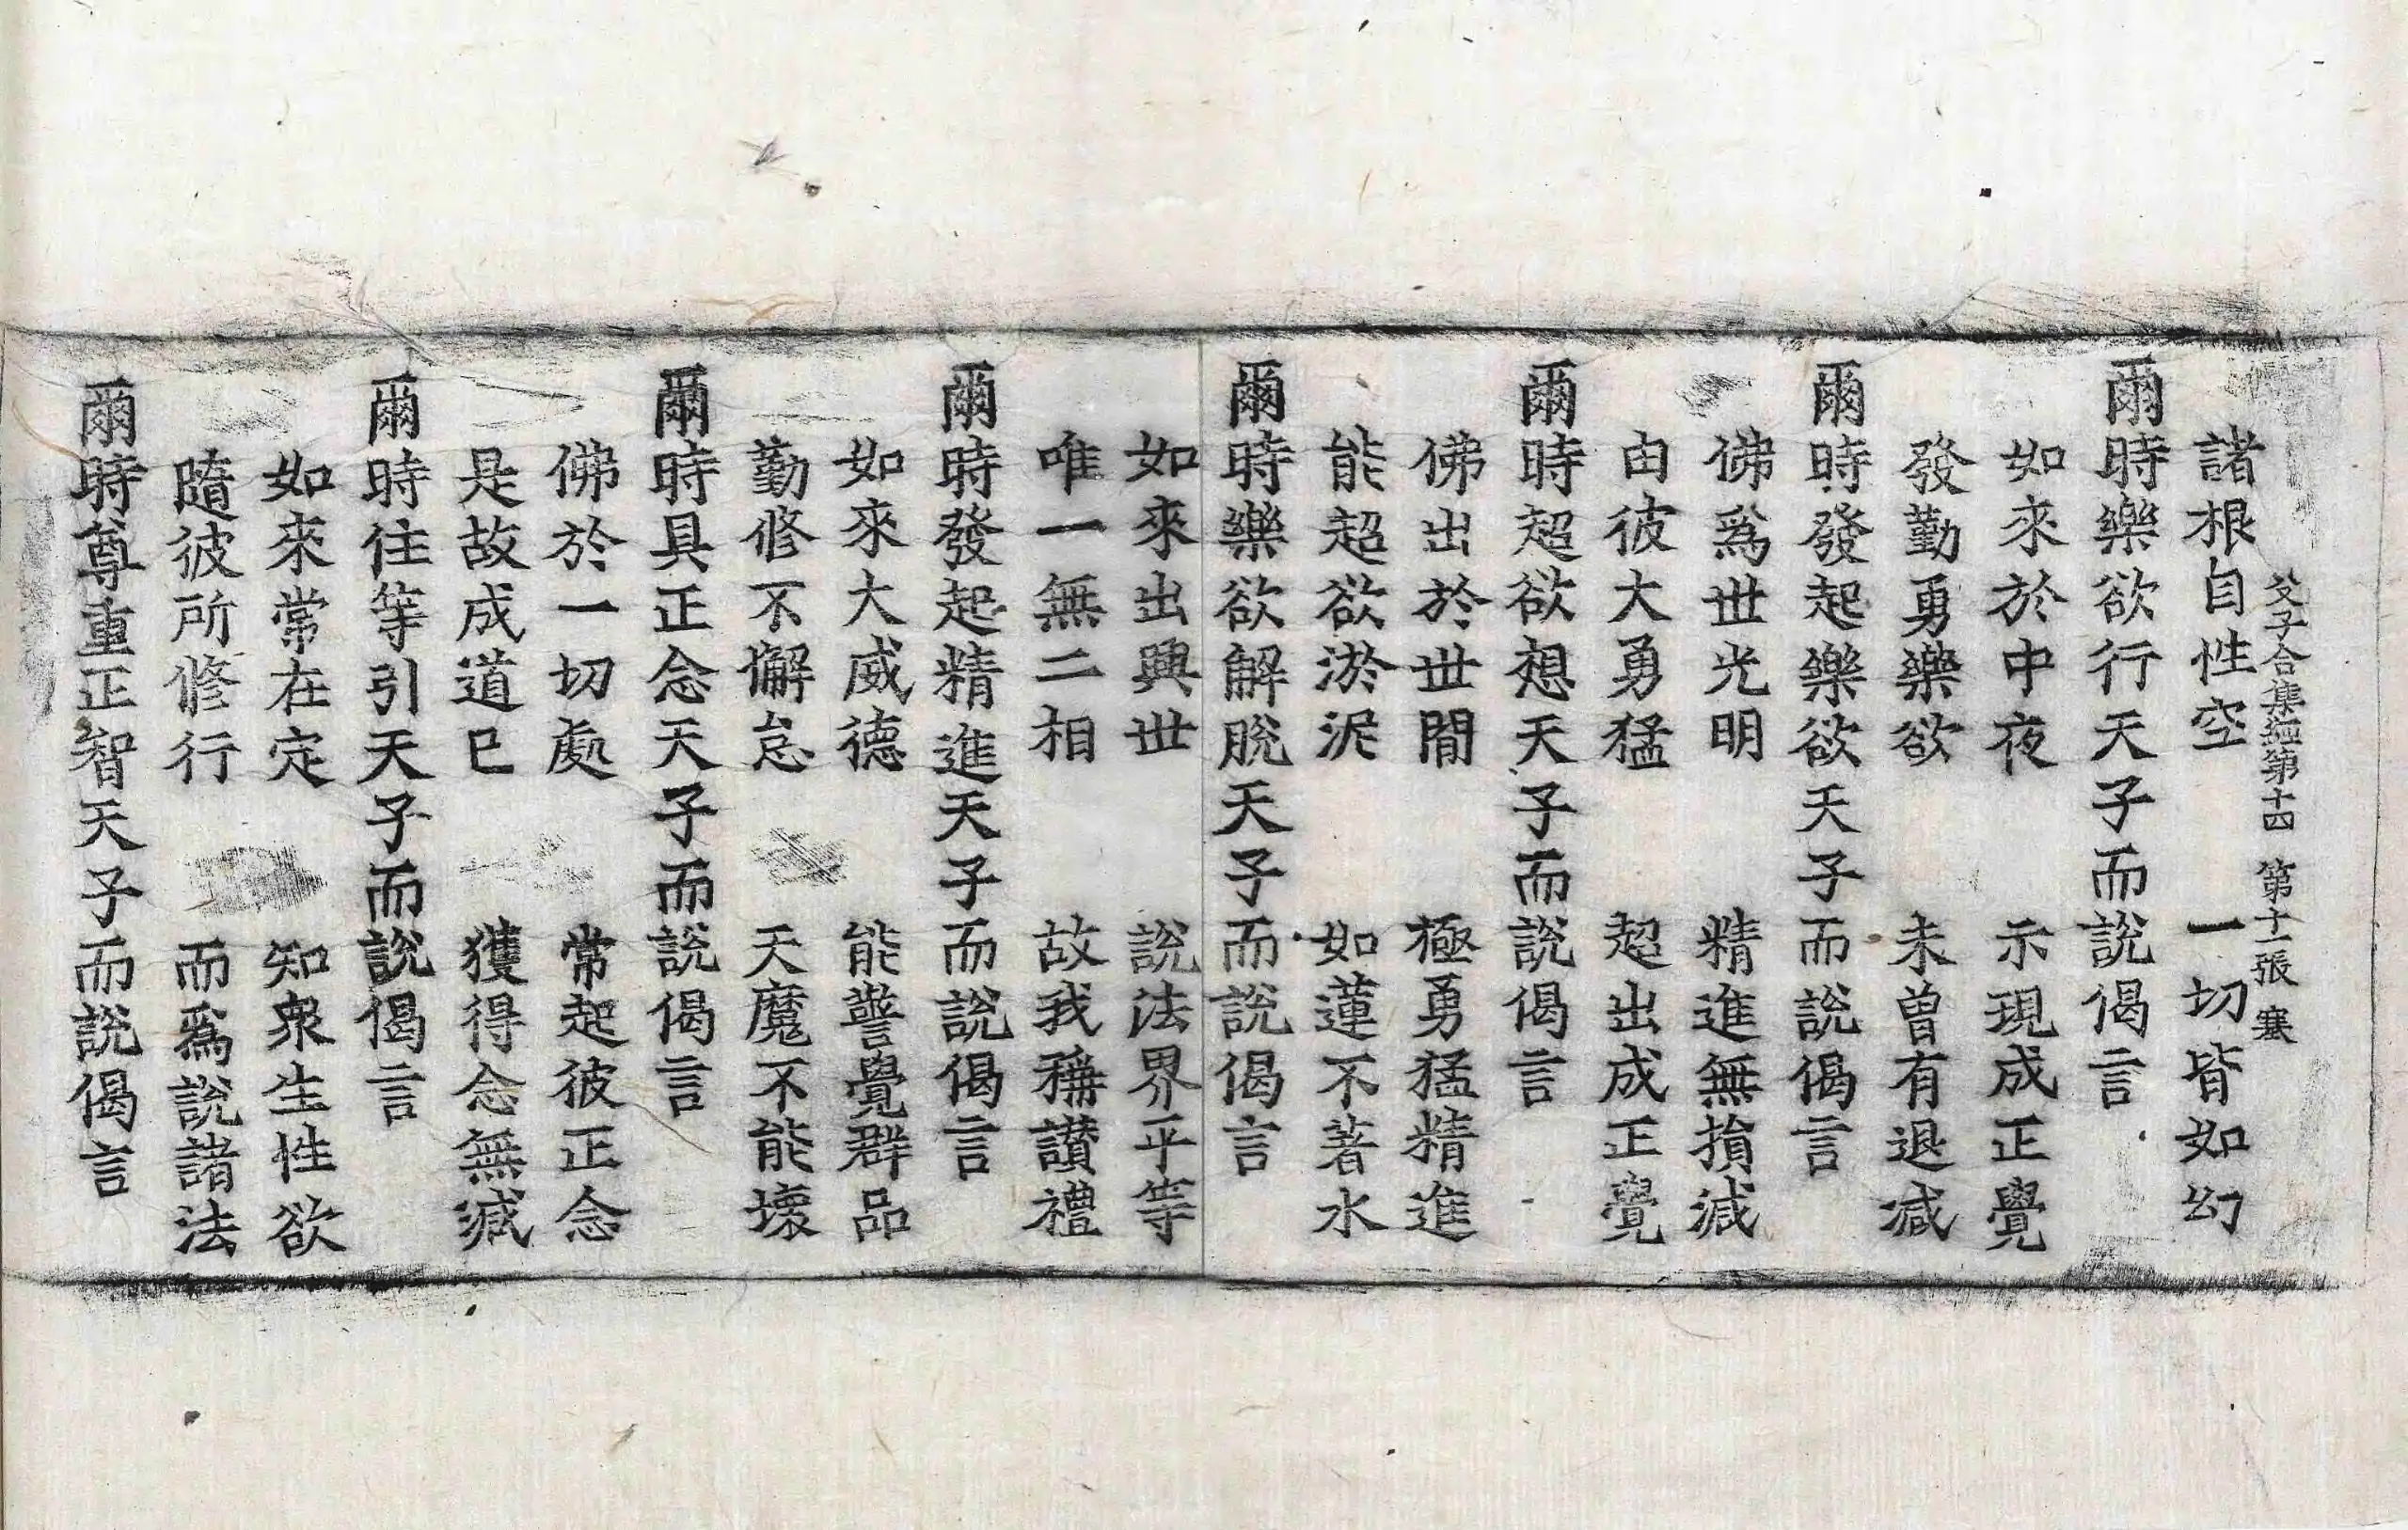 父子合集經第十四 第十一張 塞
諸根自性空 一切皆如幻
爾時樂欲行天子而說偈言
如來於中夜 示現成正覺
發勤勇樂欲 未曾有退减
爾時發起樂欲天子而說偈言
佛爲世光明 精進無損減
由彼大勇猛 超出成正覺
爾時超欲想天子而說偈言
佛出於世間 極勇猛精進
能超欲淤泥 如蓮不著水
爾時樂欲解脫天子而說偈言
如來出興世 說法界平等
唯一無二相 故我稱讃禮
爾時發起精進天子而說偈言
如來大威德 能警覺群品
勤修不懈怠 天魔不能壞
爾時具正念天子而說偈言
佛於一切處 常起彼正念
是故成道已 獲得念無減
爾時住等引天子而說偈言
如來常在定 知衆生性欲
隨彼所修行 而爲說諸法
爾時尊重正智天子而說偈言